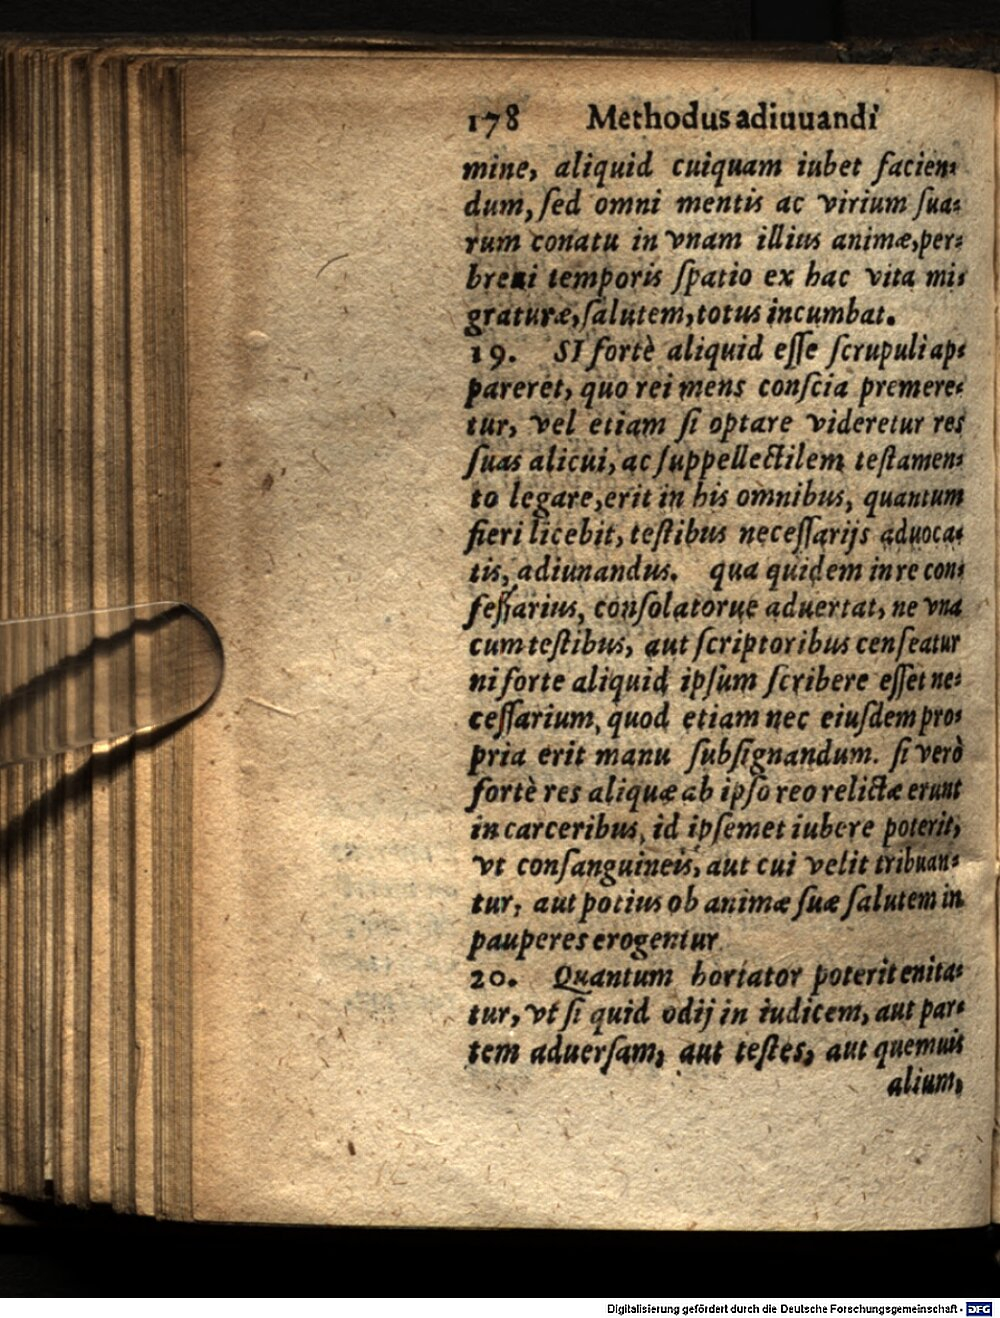 178 Methodus adiuuandi
mine, aliquid cuiquam iubet facien-
dum, ſed omni mentis ac virium ſua-
rum conatu in vnam illius animæ, per-
breui temporis ſpatio ex hac vita mi-
graturæ, ſalutem, totus incumbat.
19. SI fortè aliquid eſſe ſcrupuli ap-
pareret, quo rei mens conſcia premere-
tur, vel etiam ſi optare videretur res
ſuas alicui, ac ſuppellectilem teſtamen-
to legare, erit in his omnibus, quantum
fieri licebit, teſtibus neceſſarijs aduoca-
tis, adiuuandus. qua quidem in re con-
feſſarius, conſolatorue aduertat, ne vna
cum teſtibus, aut ſcriptoribus cenſeatur
ni forte aliquid ipſum ſcribere eſſet ne-
ceſſarium, quod etiam nec eiuſdem pro-
pria erit manu ſubſignandum. ſi verò
fortè res aliquæ ab ipſo reo relictæ erunt
in carceribus, id ipſemet iubere poterit,
vt conſanguineis, aut cui velit tribuan-
tur, aut potius ob animæ ſuæ ſalutem in
pauperes erogentur
20. Quantum hortator poterit enita-
tur, vt ſi quid odij in iudicem, aut par-
tem aduerſam, aut teſtes, aut quemuis
alium,
Digitalisierung gefördert durch die Deutsche Forschungsgemeinschaft - DFG